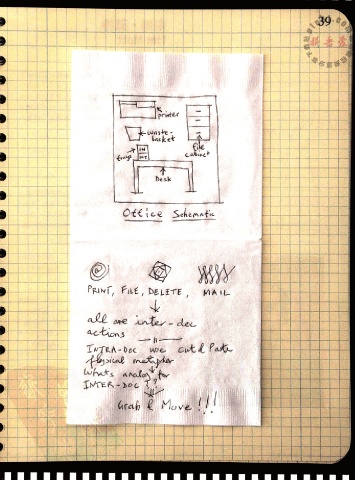 39
printer
waste-
basket
file
cabinet
trays
IN
OUT
Desk
Office Schematic
@
PRINT, FILE, DELETE, MAIL
all are inter-doc
actions
INTRA-DOC use cut & Paste
physical metaphor
Whats analog for
INTER-DOC ??
Grab & Move!!!